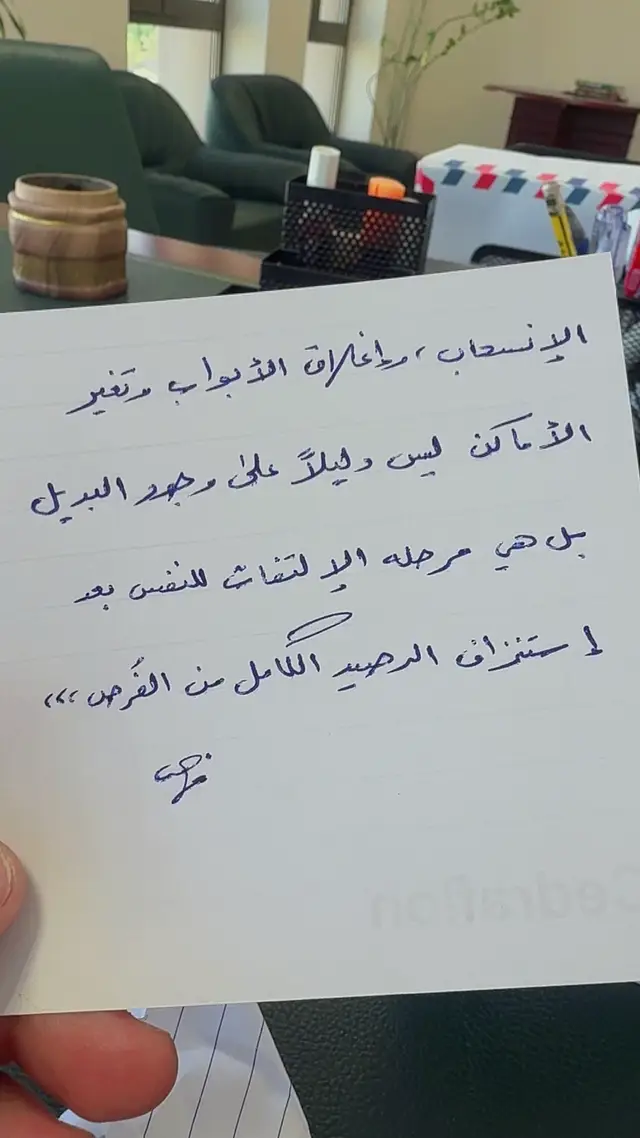 الإنسحاب ، وإغلاق الأبواب وتغير
الأماكن ليس دليلاً على وجود البديل
بل هي مرحله الإلتفات للنفس بعد
إستنزاف الرصيد الكامل من الفُرص ،،،